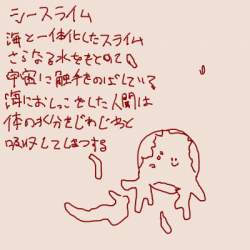 シースライム
海と一体化したスライム
さらなる水をもとめて
宇宙に触手をのばしている
海におしっこをした人間は
体の水分をじわじわと
吸収してしまつする